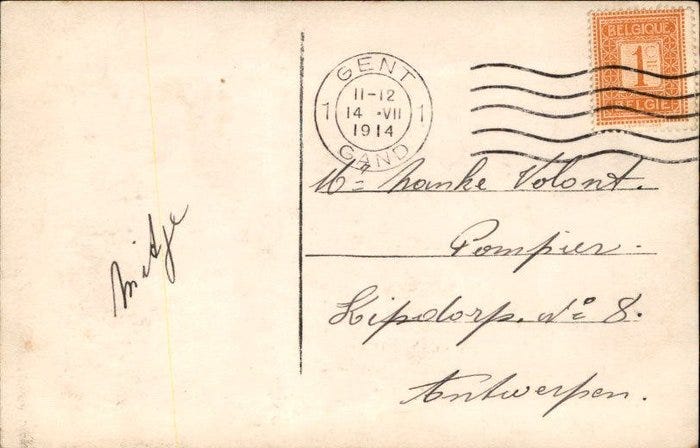 BELGIQUE
1c
BELGIË
GENT
1 11-12 1
14 · VII
1914
GAND
Mr Volont.
Pompier.
Kipdorp. No 8.
Antwerpen.